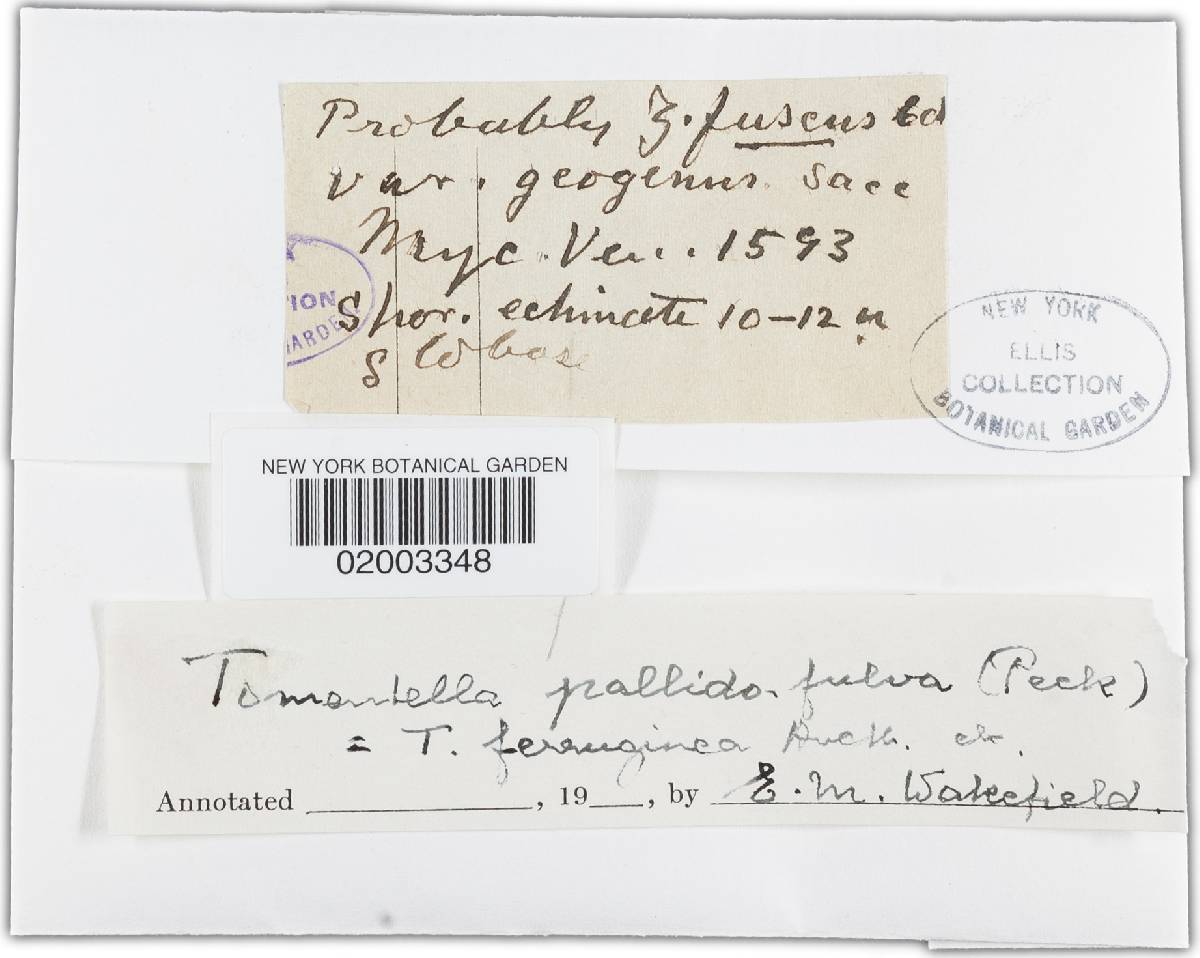 Probably Z. fuscus Cd
var. geogenus Sacc
Myc. Ven. 1593
Spor. echinate 10-12 u
globose
ION
GARDEN
NEW YORK
ELLIS
COLLECTION
BOTANICAL GARDEN
NEW YORK BOTANICAL GARDEN
02003348
Tomentella pallido-fulva (Peck)
= T. ferruginea
Annotated , 19 , by E. M. Wakefield.